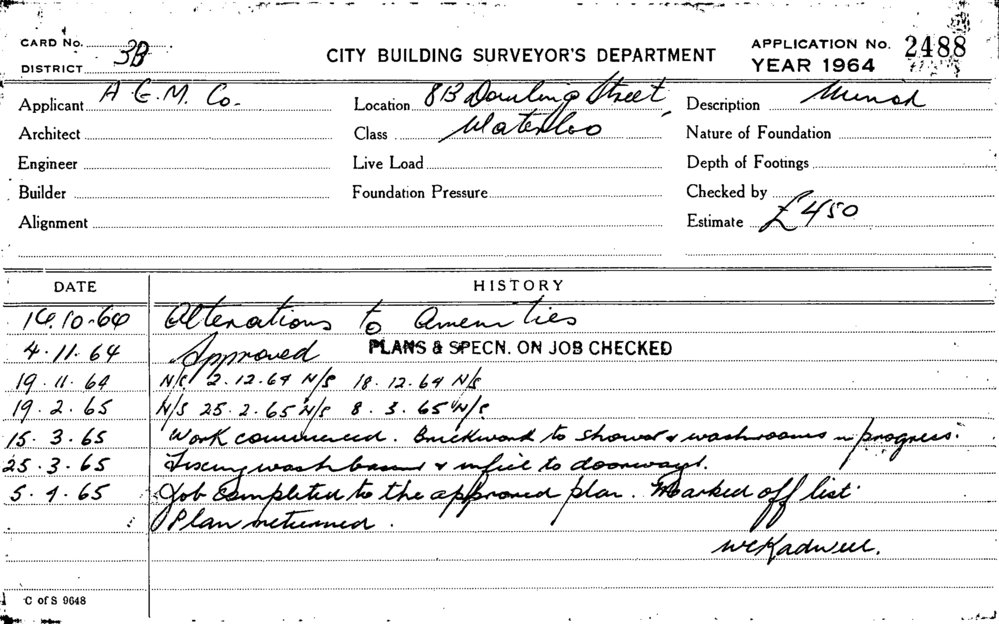 CARD No.
DISTRICT 3B
CITY BUILDING SURVEYOR'S DEPARTMENT
APPLICATION No. 2488
YEAR 1964
Applicant A G. M. Co.
Location 813 Dowling Street,
Description Minor
Architect
Class Waterloo
Nature of Foundation
Engineer
Live Load
Depth of Footings
Builder
Foundation Pressure
Checked by
Alignment
Estimate £450
DATE HISTORY
16.10.64 Alterations to Amenities
4.11.64 Approved PLANS & SPECN. ON JOB CHECKED
19.11.64 N/S 2.12.64 N/S 18.12.64 N/S
19.2.65 N/S 25.2.65 N/S 8.3.65 N/S
15.3.65 Work commenced. Brickwork to shower & washrooms in progress.
25.3.65 Fixing wash basins & infill to doorways.
5.4.65 Job completed to the approved plan. Marked off list
Plan returned.
WCKadwell.
C of S 9648